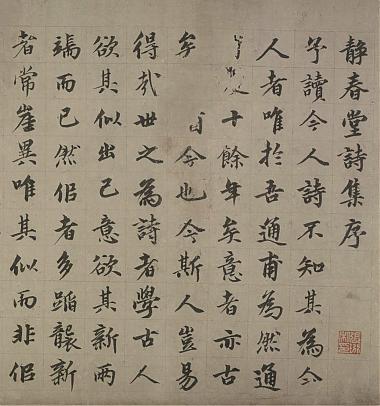 静春堂詩集序
予讀今人詩不知其為今
人者唯於吾通甫為然通
十餘年矣意者亦古
矣今也今斯人豈易
得哉世之為詩者學古人
欲其似出己意欲其新兩
端而已然佀者多蹈襲新
者常崖異唯其似而非佀